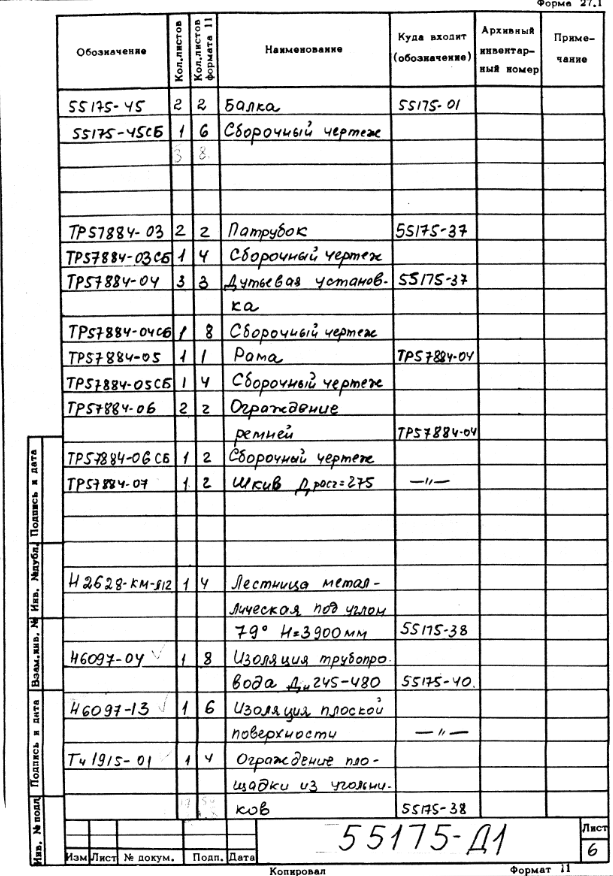 Форма 27.1
Обозначение Кол.листов Кол.листов формата 11 Наименование Куда входит (обозначение) Архивный инвентарный номер Примечание
55175-45 2 2 Балка 55175-01
55175-45СБ 1 6 Сборочный чертеж
3 8
ТР57884-03 2 2 Патрубок 55175-37
ТР57884-03СБ 1 4 Сборочный чертеж
ТР57884-04 3 3 Дутьевая установ- 55175-37
ка
ТР57884-04СБ 1 8 Сборочный чертеж
ТР57884-05 1 1 Рама ТР57884-04
ТР57884-05СБ 1 4 Сборочный чертеж
ТР57884-06 2 2 Ограждение
ремней ТР57884-04
ТР57884-06СБ 1 2 Сборочный чертеж
ТР57884-07 1 2 Шкив Д расч=275 —"—
Н2628-КМ-Я12 1 4 Лестница метал-
лическая под углом
79° Н=3900мм 55175-38
Н6097-04 1 8 Изоляция трубопро-
вода Дн 245-480 55175-40
Н6097-13 1 6 Изоляция плоской
поверхности —"—
Тч1915-01 1 4 Ограждение пло-
щадки из угольни-
ков 55175-38
Инв. № подл.
Подпись и дата
Взам.инв. №
Инв. №дубл.
Подпись и дата
55175-Д1
Лист
6
Изм Лист № докум. Подп. Дата
Копировал Формат 11